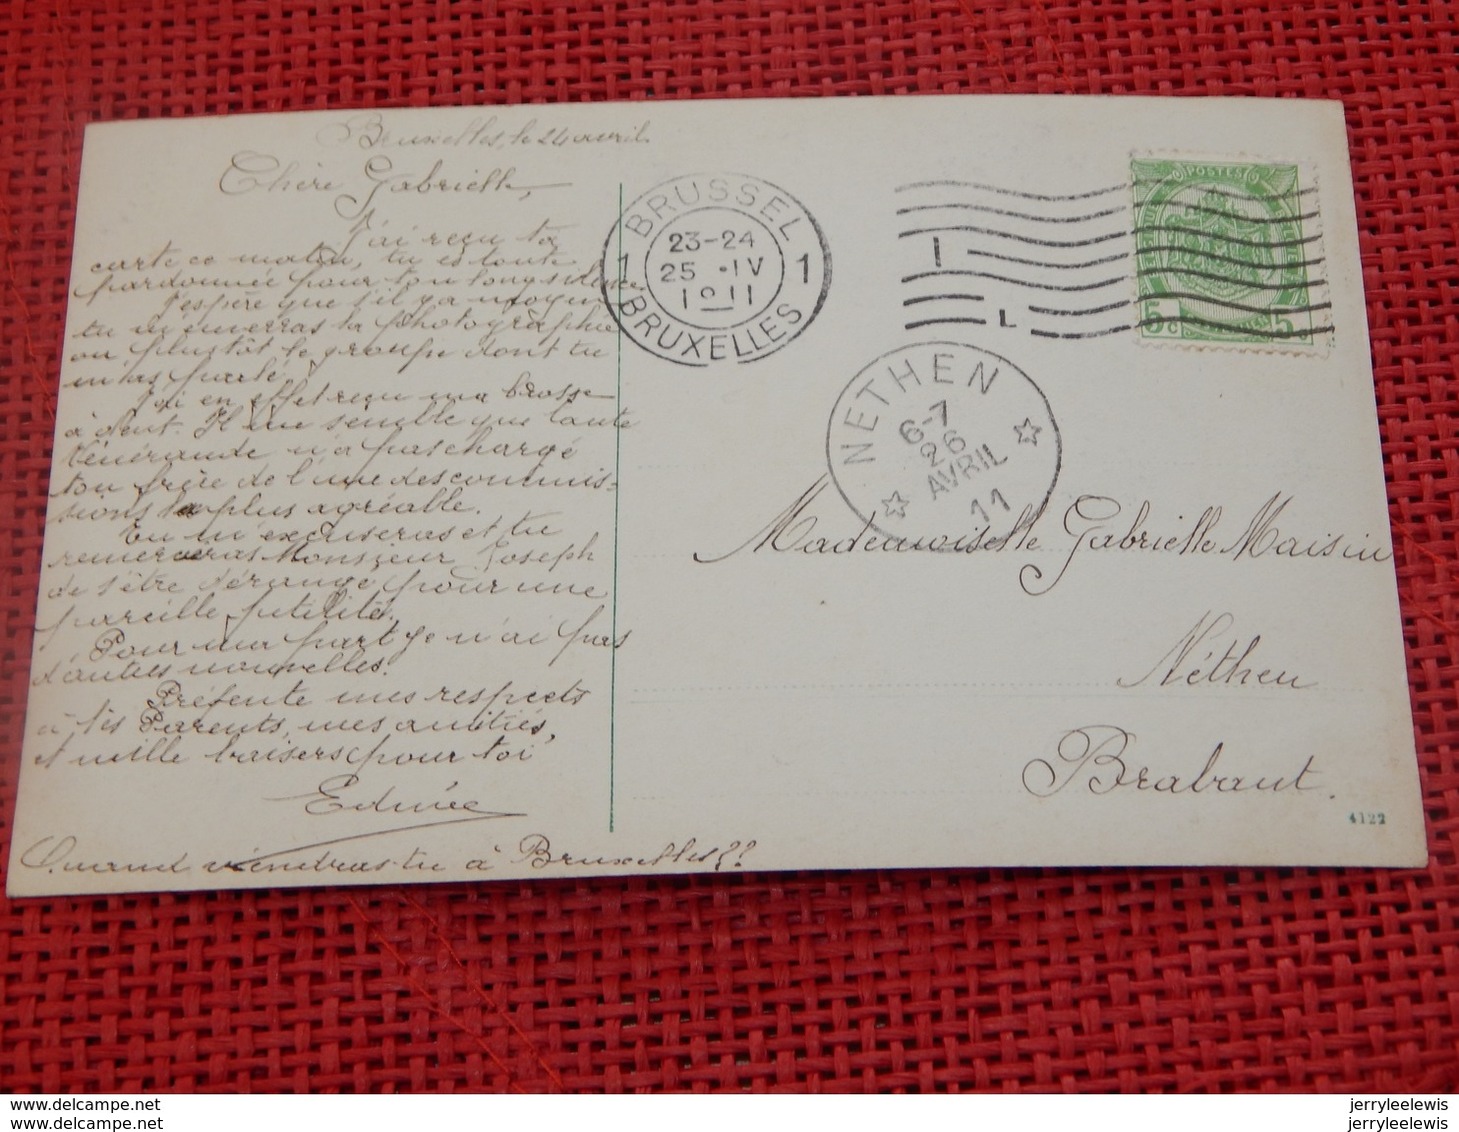 Bruxelles, le 24 avril
Chère Gabrielle,
J'ai reçu ta
carte ce matin, tu es toute
pardonnée pour ton long silence
J'espère que s'il y a moyen
tu m'enverras la photographie
ou plutôt le groupe dont tu
m'as parlé.
J'ai en effet reçu ma brosse
à dent. Il me semble que tante
Vénérande n'a pas chargé
ton frère de l'une des commis-
sions la plus agréable.
Tu m'excuseras et tu
remerceras Monsieur Joseph
de s'être dérangé pour une
pareille futilité.
Pour ma part je n'ai pas
d'autres nouvelles.
Présente mes respects
à tes Parents, mes amitiés,
et mille baisers pour toi
Edmée
Quand viendras tu à Bruxelles??
BRUSSEL
1 1
23-24
25 .IV
1911
BRUXELLES
1
L
POSTES
5c 5c
NETHEN
6-7
26
AVRIL
11
Mademoiselle Gabrielle Maisin
Néthen
Brabant.
4122
delcampe.net
jerryleelewis
delcampe.net
jerryleelewis